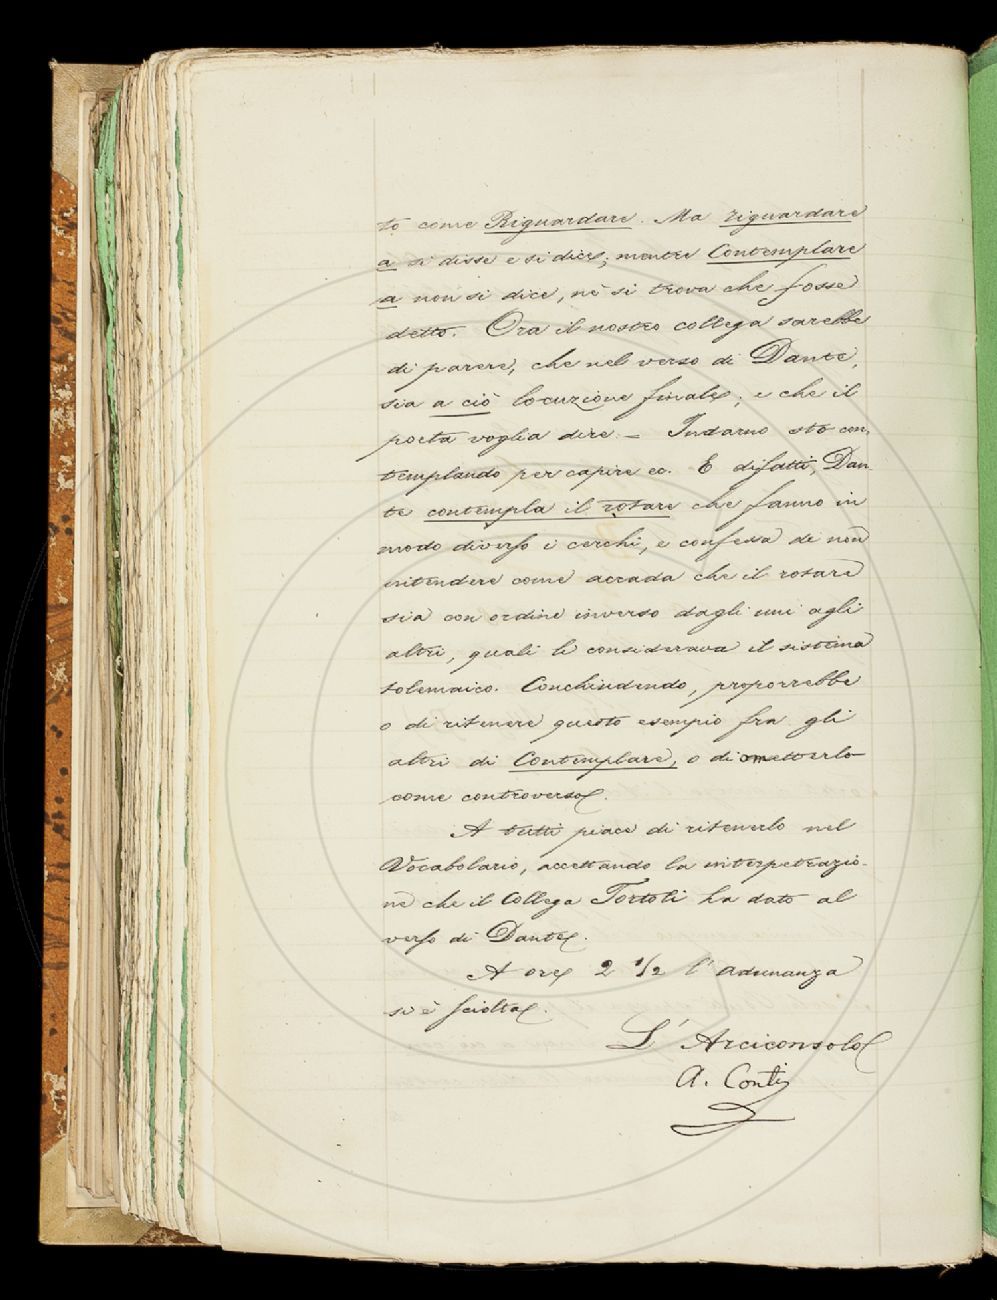 to come Riguardare. Ma riguardare
a si disse e si dice; mentre Contemplare
a non si dice, nè si trova che fosse
detto. Ora il nostro collega sarebbe
di parere, che nel verso di Dante,
sia a ciò locuzione finale; e che il
poeta voglia dire = Indarno sto con,
templando per capire ec. E difatti, Dan
te contempla il rotare che fanno in
modo diverso i cerchi, e confessa di non
intendere come accada che il rotare
sia con ordine inverso dagli uni agli
altri, quali li considerava il sistema
tolemaico. Conchiudendo, proporrebbe
o di ritenere questo esempio fra gli
altri di Contemplare, o di metterlo
come controverso.
A tutti piace di ritenerlo nel
Vocabolario, accettando la interpetrazio-
ne che il Collega Tortoli ha dato al
verso di Dante.
A ore 2 1/2 l'adunanza
si è sciolta.
L'Arciconsolo
A. Conti